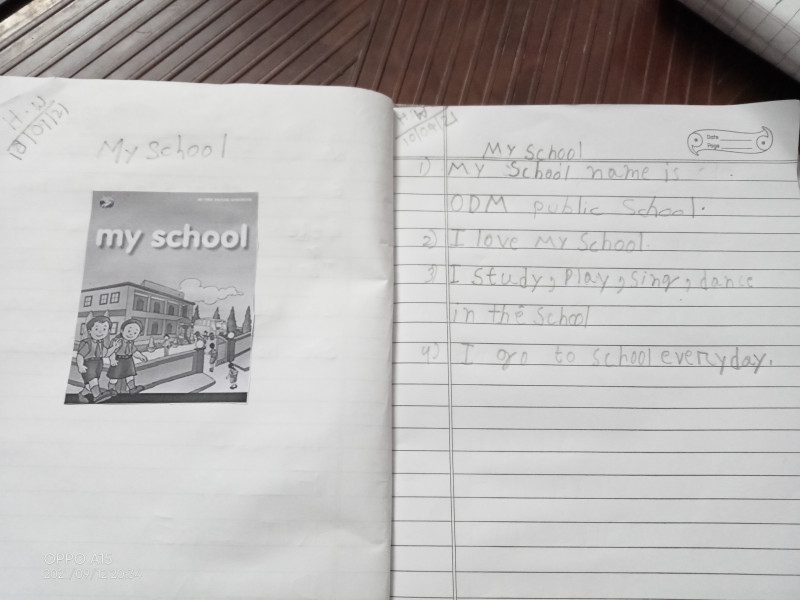 H.W
10/09/21
My School
my school
OPPO A15
H.W
10/09/21
Date
Page
My School
1) My School name is
ODM public School.
2) I love My School.
3) I Study, Play, sing, dance
in the School
4) I go to School everyday.